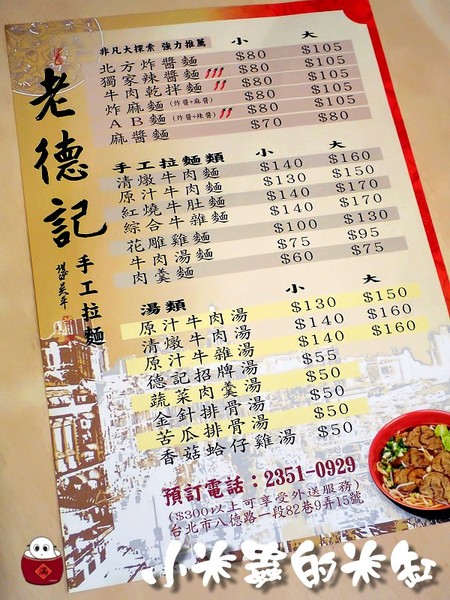 非凡大探索 強力推薦
小 大
北方炸醬麵 $80 $105
獨家辣醬麵 $80 $105
牛肉乾拌麵 $80 $105
炸麻麵(炸醬+麻醬) $80 $105
AB麵(炸醬+辣醬) $80 $105
麻醬麵 $70 $80
老德記
手工拉麵
手工拉麵類 小 大
清燉牛肉麵 $140 $160
原汁牛肉麵 $130 $150
紅燒牛肚麵 $140 $170
綜合牛雜麵 $140 $170
花雕雞麵 $100 $130
牛肉湯麵 $75 $95
肉羹麵 $60 $75
湯類 小 大
原汁牛肉湯 $130 $150
清燉牛肉湯 $140 $160
原汁牛雜湯 $140 $160
德記招牌湯 $55
蔬菜肉羹湯 $50
金針排骨湯 $50
苦瓜排骨湯 $50
香菇蛤仔雞湯 $50
預訂電話：2351-0929
($300以上可享受外送服務)
台北市八德路一段82巷9弄15號
小米蟲的米缸